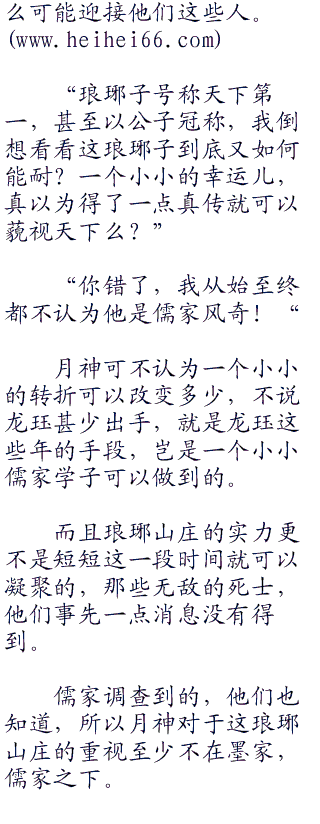 么可能迎接他们这些人。
(www.heihei66.com)
“琅琊子号称天下第
一，甚至以公子冠称，我倒
想看看这琅琊子到底又如何
能耐？一个小小的幸运儿，
真以为得了一点真传就可以
藐视天下么？”
“你错了，我从始至终
都不认为他是儒家风奇！“
月神可不认为一个小小
的转折可以改变多少，不说
龙珏甚少出手，就是龙珏这
些年的手段，岂是一个小小
儒家学子可以做到的。
而且琅琊山庄的实力更
不是短短这一段时间就可以
凝聚的，那些无敌的死士，
他们事先一点消息没有得
到。
儒家调查到的，他们也
知道，所以月神对于这琅琊
山庄的重视至少不在墨家，
儒家之下。